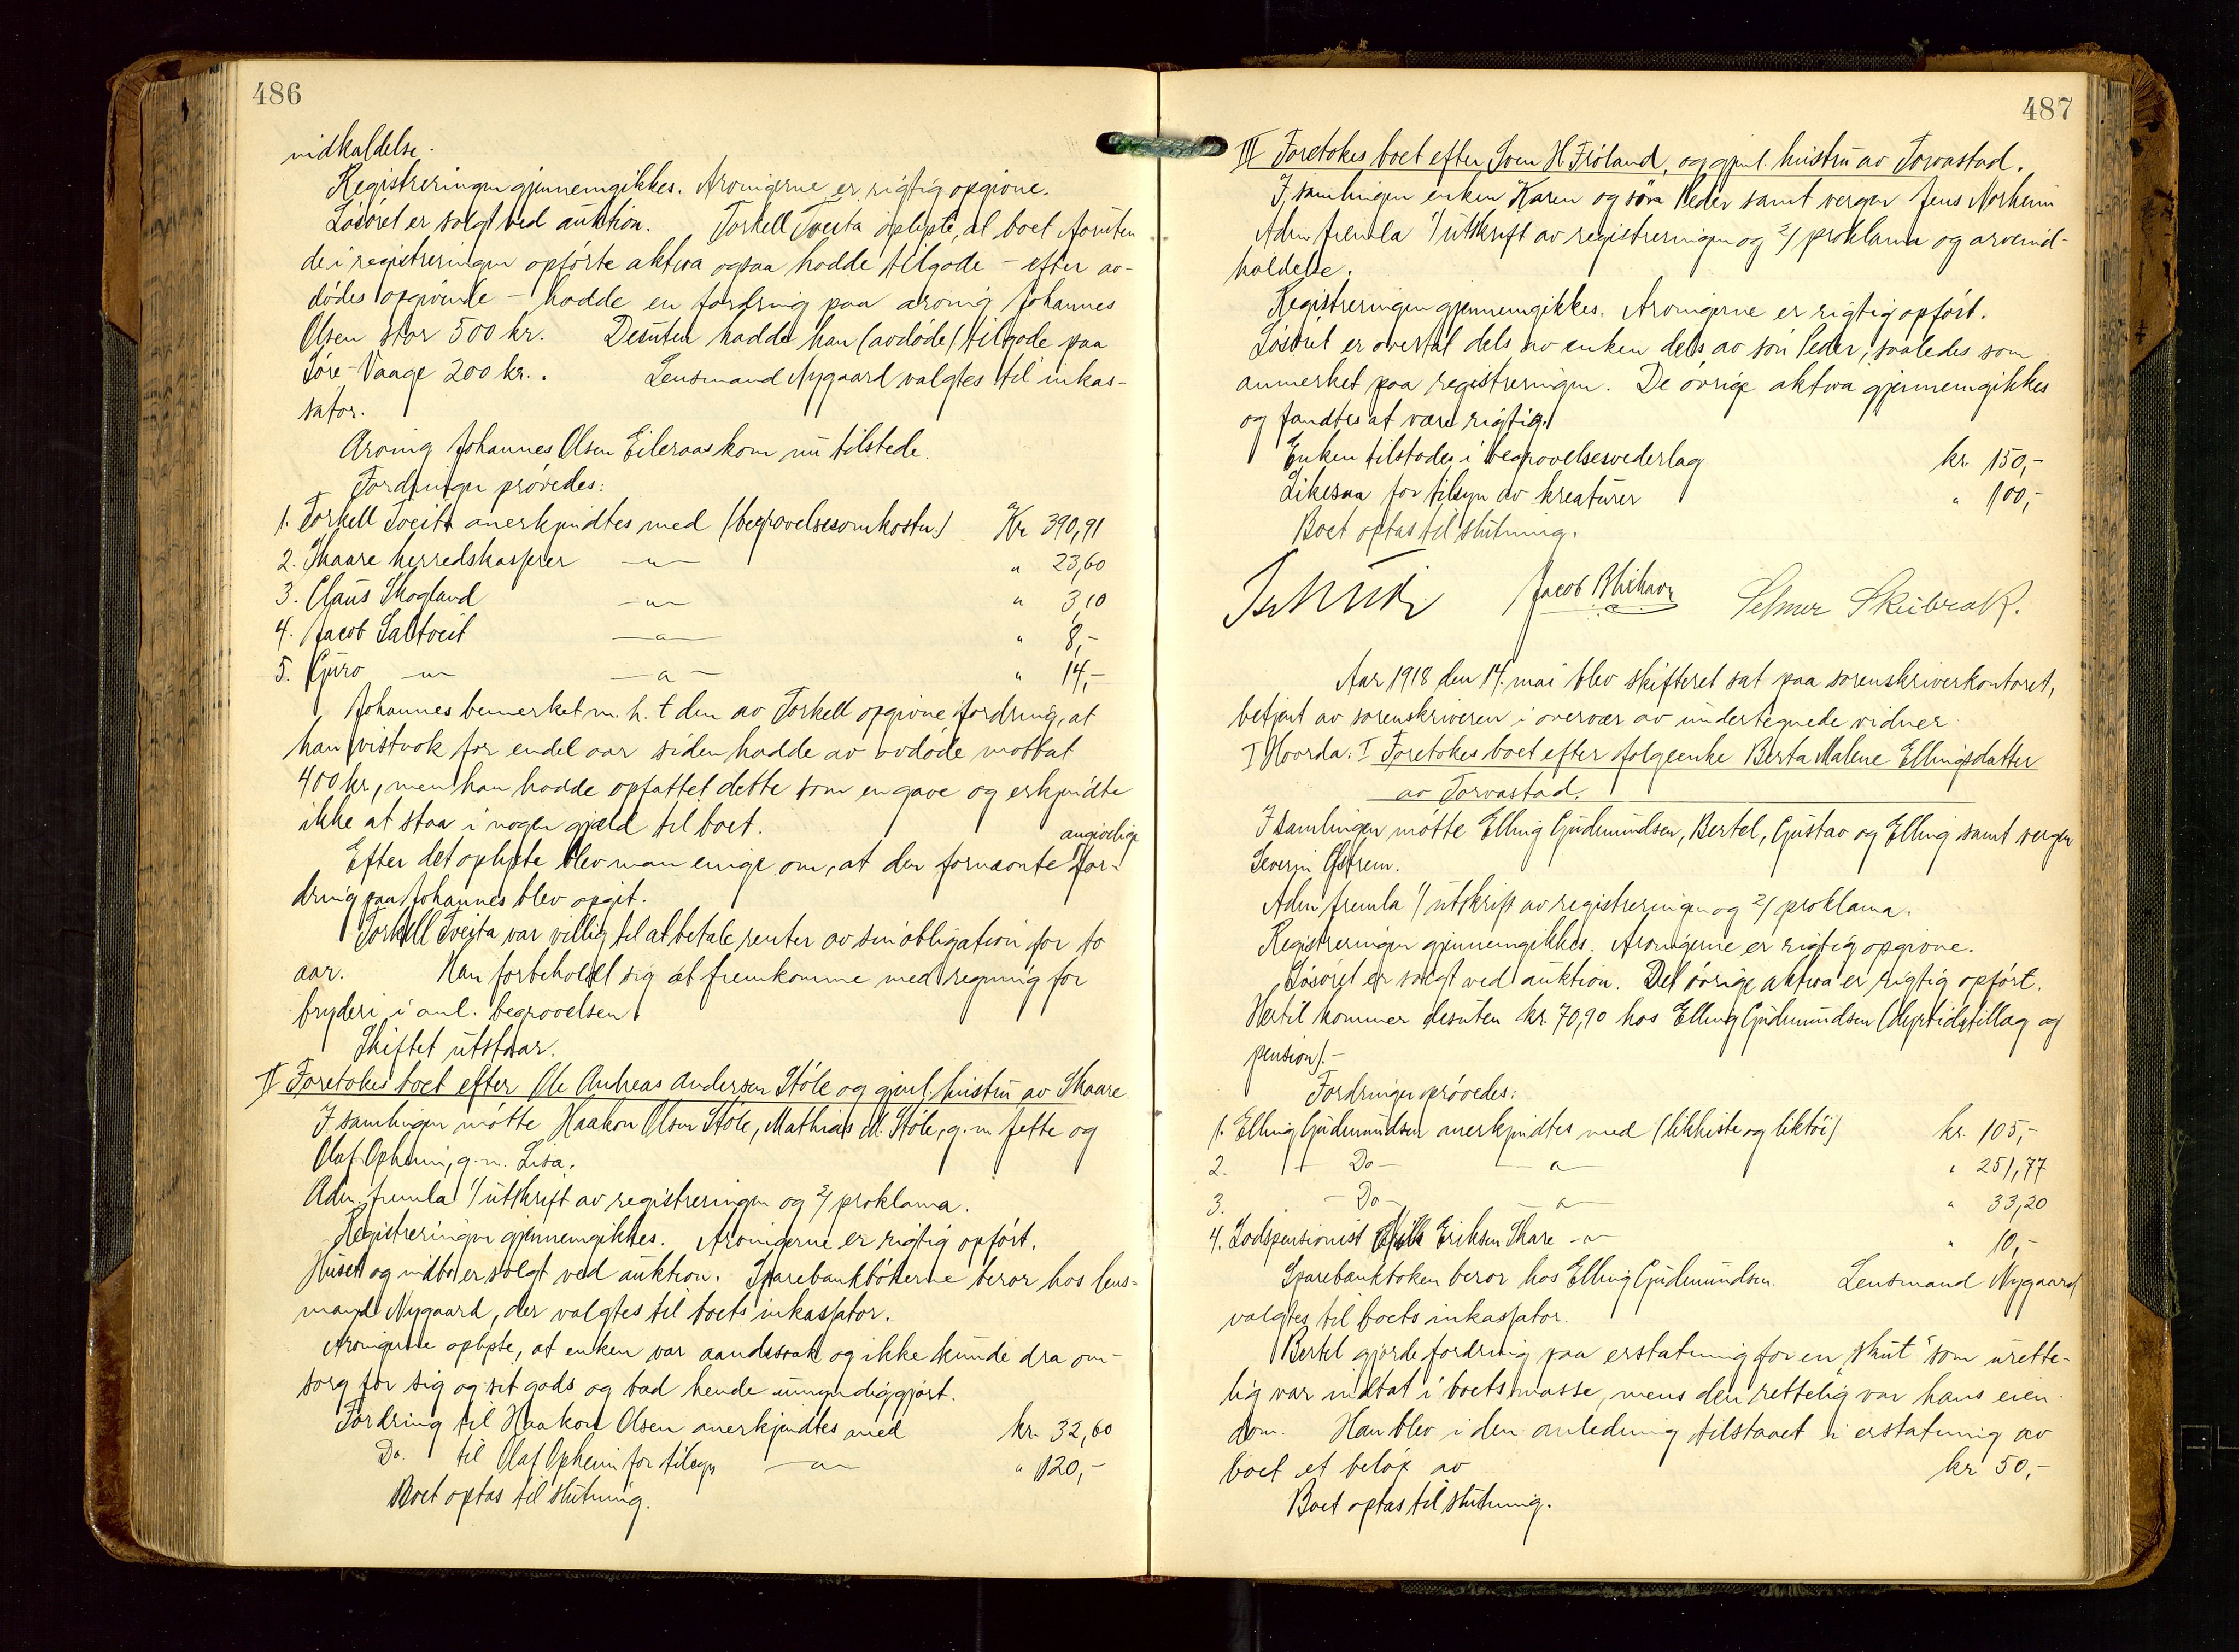 486
indkaldelse.
Registreringen gjennemgikkes. Arvingerne er rigtig opgivne.
Løsøret er solgt ved auktion. Torkell Tveita oplyste, at boet foruten
de i registreringen opførte aktiva ogsaa hadde tilgode – efter av-
dødes opgivende – hadde en fordring paa arving Johannes
Olsen stor 500 kr. Desuten hadde han (avdøde) tilgode paa
Tøre Vaage 200 kr.. Lensmand Nygaard valgtes til inkas-
sator.
Arving Johannes Olsen Eileraas kom nu tilstede.
Fordringer prøvedes:
1. Torkell Tveita anerkjendtes med (begravelsesomkostn.) Kr 390,91
2. Skaare herredskasserer —"— " 23,60
3. Claus Skogland —"— " 3,10
4. Jacob Saltveit —"— " 8,-
5. Guro —"— —"— " 14,-
Johannes bemerket m. h. t den av Torkell opgivne fordring, at
han vistnok for endel aar siden hadde av avdøde mottat
400 kr, men han hadde opfattet dette som en gave og erkjendte
ikke at staa i nogen gjæld til boet.
angivelige
Efter det oplyste blev man enige om, at den fornævnte for-
dring paa Johannes blev opgit.
Torkell Tveita var villig til at betale renter av sin obligation for to
aar. Han forbeholdt sig at fremkomme med regning for
bryderi i anl. begravelsen.
Skiftet utstaar.
II Foretokes boet efter Ole Andreas Andersen Støle og gjenl. hustru av Skaare.
I samlingen møtte Haakon Olsen Støle, Mathias M. Støle, g. m. Jette og
Olaf Opheim, g. m. Lisa.
Adm. fremla 1/ utskrift av registreringen og 2/ proklama.
Registreringen gjennemgikkes. Arvingerne er rigtig opført.
Huset og indbo er solgt ved auktion. Sparebankbøkerne beror hos lens-
mand Nygaard, der valgtes til boets inkassator.
Arvingerne oplyste, at enken var aandssvak og ikke kunde dra om-
sorg for sig og sit gods og bad hende umyndiggjort.
Fordring til Haakon Olsen anerkjendtes med kr. 32,60
Do. til Olaf Opheim for tilsyn —"— " 120,-
Boet optas til slutning.
487
III Foretokes boet efter Sven H. Frøland, og gjenl. hustru av Torvastad.
I samlingen enken Karen og søn Peder samt vergen Jens Norheim
Adm. fremla 1/ utskrift av registreringen og 2/ proklama og arveind-
kaldelse.
Registreringen gjennemgikkes. Arvingerne er rigtig opført.
Løsøret er overtat dels av enken dels av søn Peder, saaledes som
anmerket paa registreringen. De øvrige aktiva gjennemgikkes
og fandtes at være rigtig.
Enken tilstodes i begravelsesvederlag kr. 150,-
Likesaa for tilsyn av kreaturer " 100,-
Boet optas til slutning.
Jacob Blikhavn Selmer Skeibrok.
Aar 1918 den 14. mai blev skifteret sat paa sorenskriverkontoret,
betjent av sorenskriveren i overvær av undertegnede vidner.
I Hvorda: I Foretokes boet efter følgeenke Berta Malene Ellingsdatter
av Torvastad.
I samlingen møtte Elling Gudmundsen, Bertel, Gustav og Elling samt vergen
Severin Østrem.
Adm fremla 1/ utskrift av registreringen og 2/ proklama.
Registreringen gjennemgikkes. Arvingerne er rigtig opgivne.
Løsøret er solgt ved auktion. Det øvrige aktiva er rigtig opført.
Hertil kommer desuten kr. 70,90 hos Elling Gudmundsen (dyrtidstillæg og
pension).-
Fordringer prøvedes:
1. Elling Gudmundsen anerkjendtes med (likkiste og liktøi) kr. 105,-
2. — Do — —"— " 251,77
3. — Do — —"— " 33,20
4. Lodspensionist Eriksen Skare —"— " 10,-
Sparebankboken beror hos Elling Gudmundsen. Lensmand Nygaard
valgtes til boets inkassator.
Bertel gjorde fordring paa erstatning for en "skut" som urette-
lig var indtat i boets masse, mens den rettelig var hans eien-
dom. Han blev i den anledning tilstaaet i erstatning av
boet et beløp av kr 50,-
Boet optas til slutning.